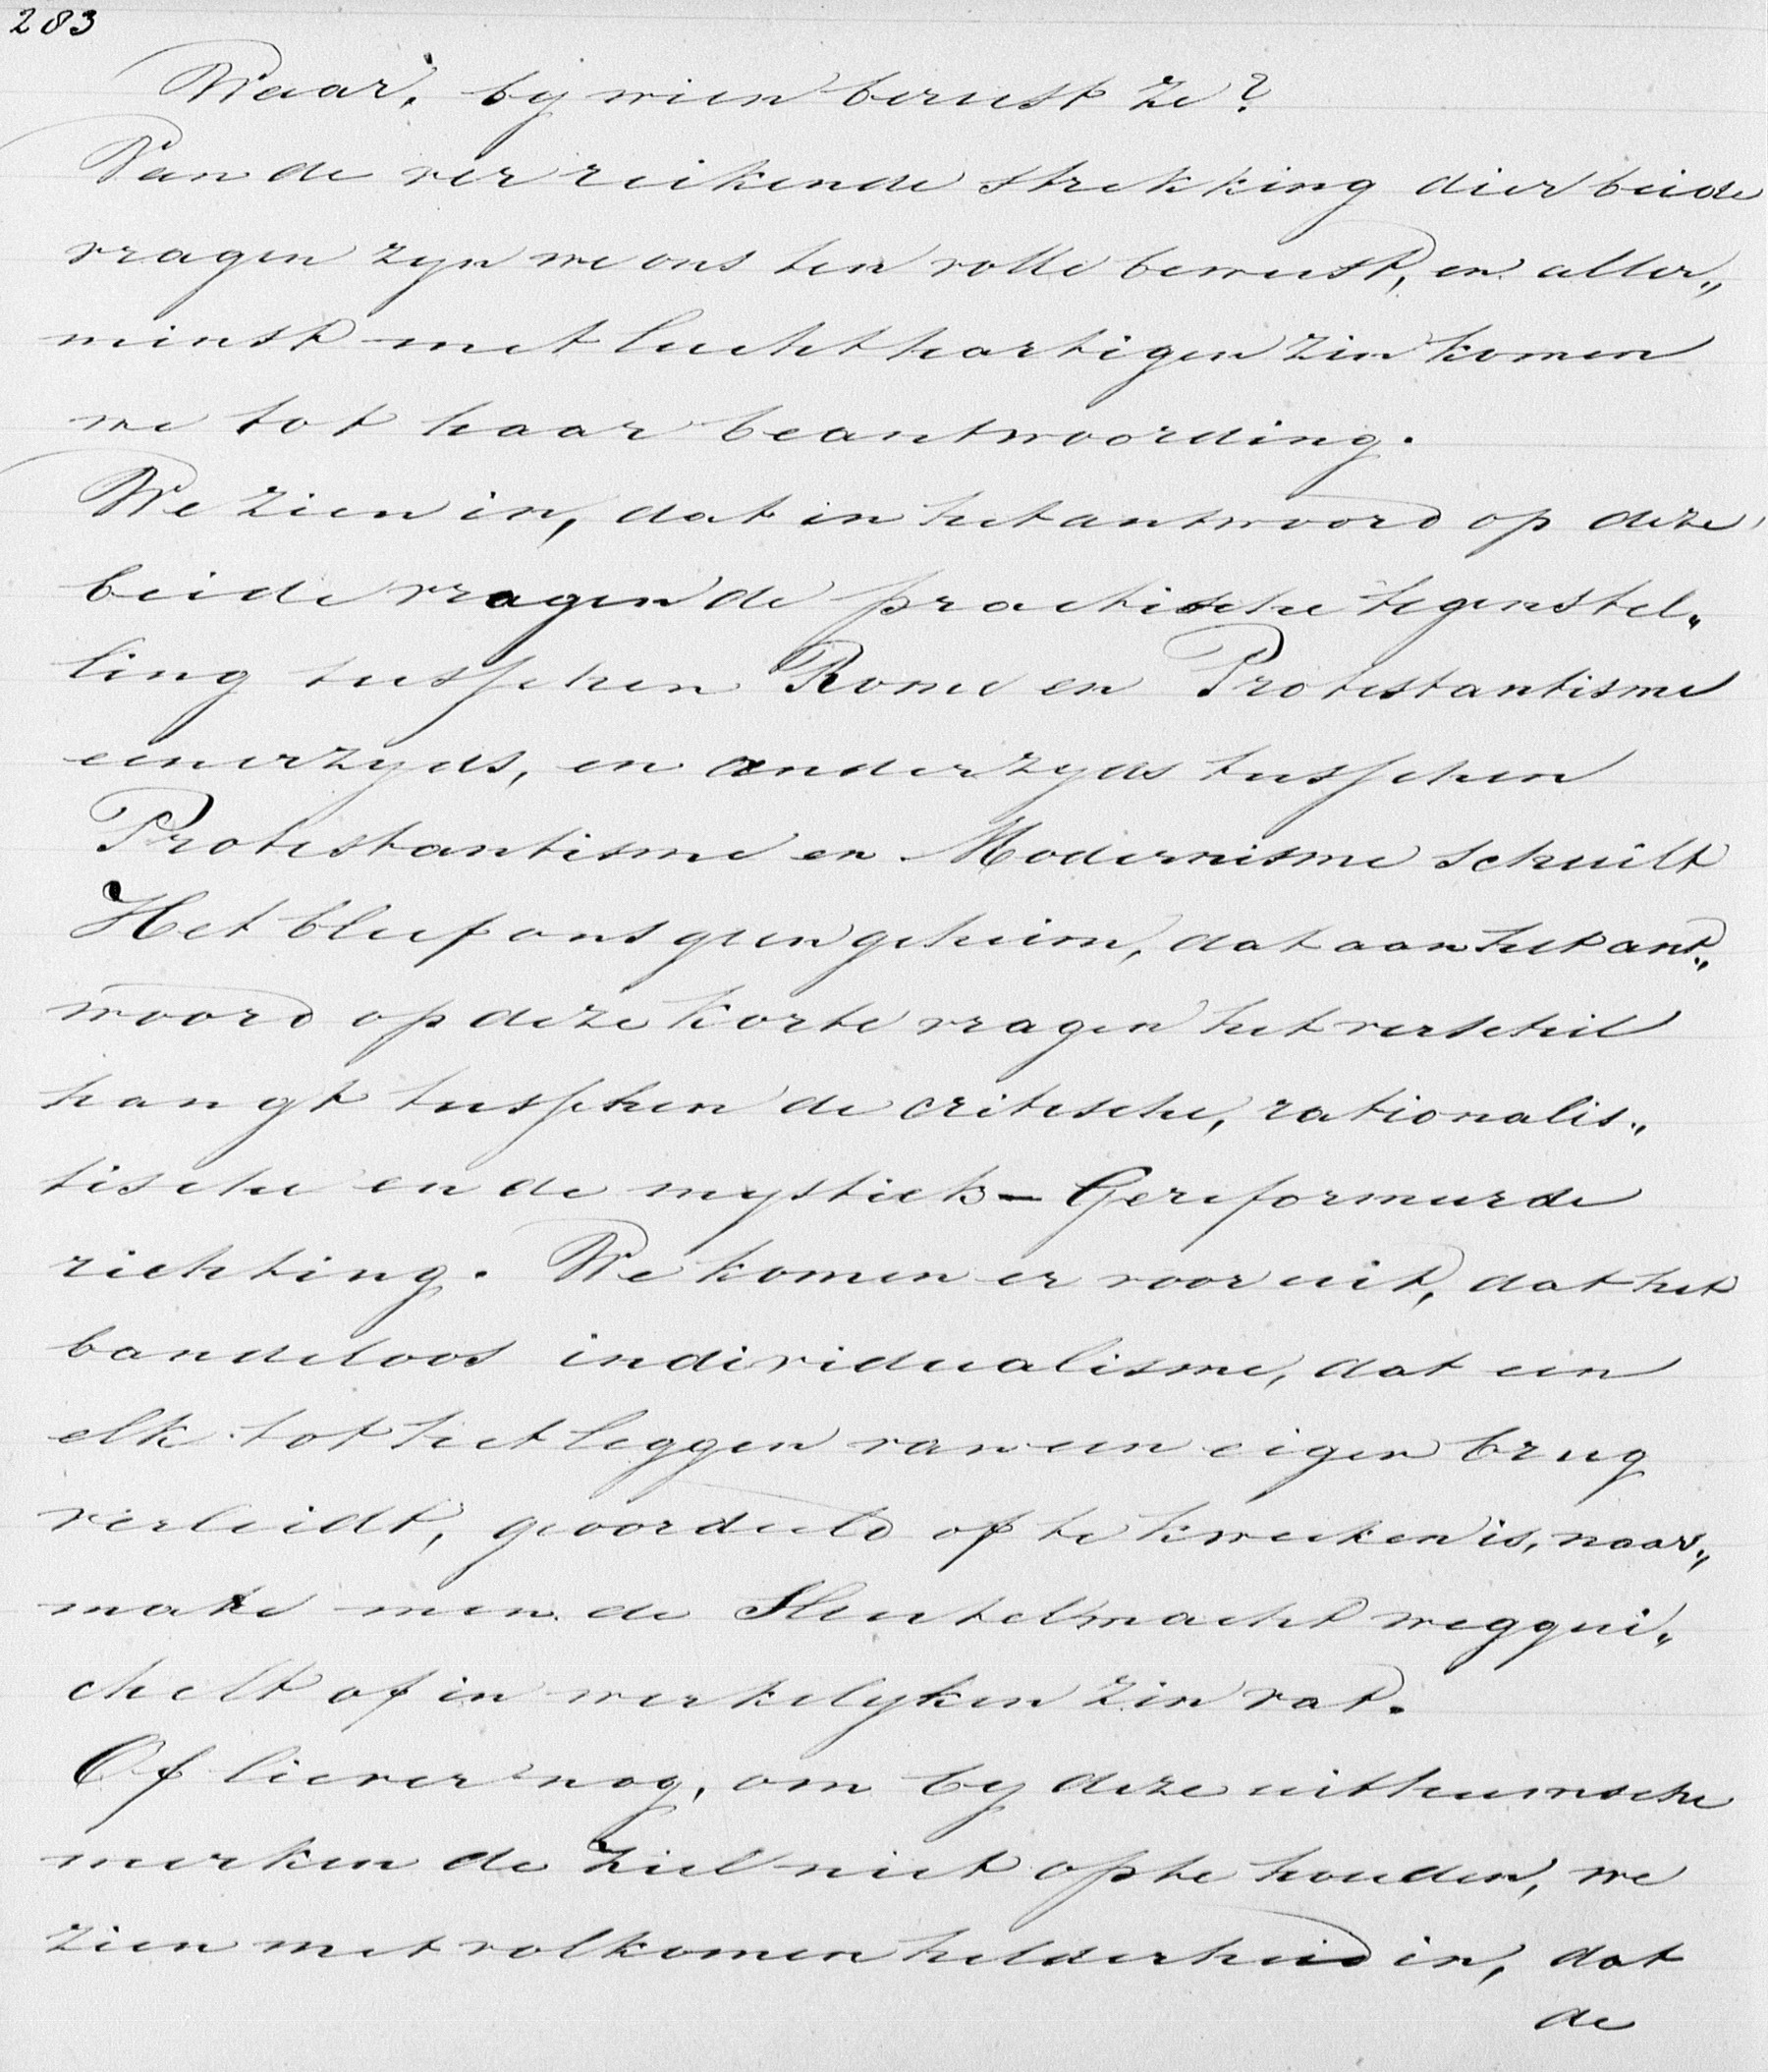 283
Waar, by wien berust ze?
Van de ver reikende strekking dier beide
vragen zyn we ons ten volle bewust, en aller„
minst met luchthartigen zin komen
we tot haar beantwoording.
We zien in, dat in het antwoord op deze
beide vragen de practische tegenstel„
ling tusschen Rome en Protestantisme
eenerzyds, en anderzyds tusschen
Protestantisme en Modernisme schuilt
Het bleef ons geen geheim, dat aan het ant„
woord op deze korte vragen het verschil
hangt tusschen de critische, rationalis„
tische en de mystiek-Gereformeerde
richting. We komen er voor uit, dat het
bandeloos individualisme, dat een
elk tot het leggen van een eigen brug
verleidt, geoordeeld of te kweeken is, naar„
mate men de Sleutelmacht weggui„
chelt of in werkelyken zin vat.
Of liever nog, om by deze uitheemsche
merken de ziel niet op te houden, we
zien met volkomen helderheid in, dat
de